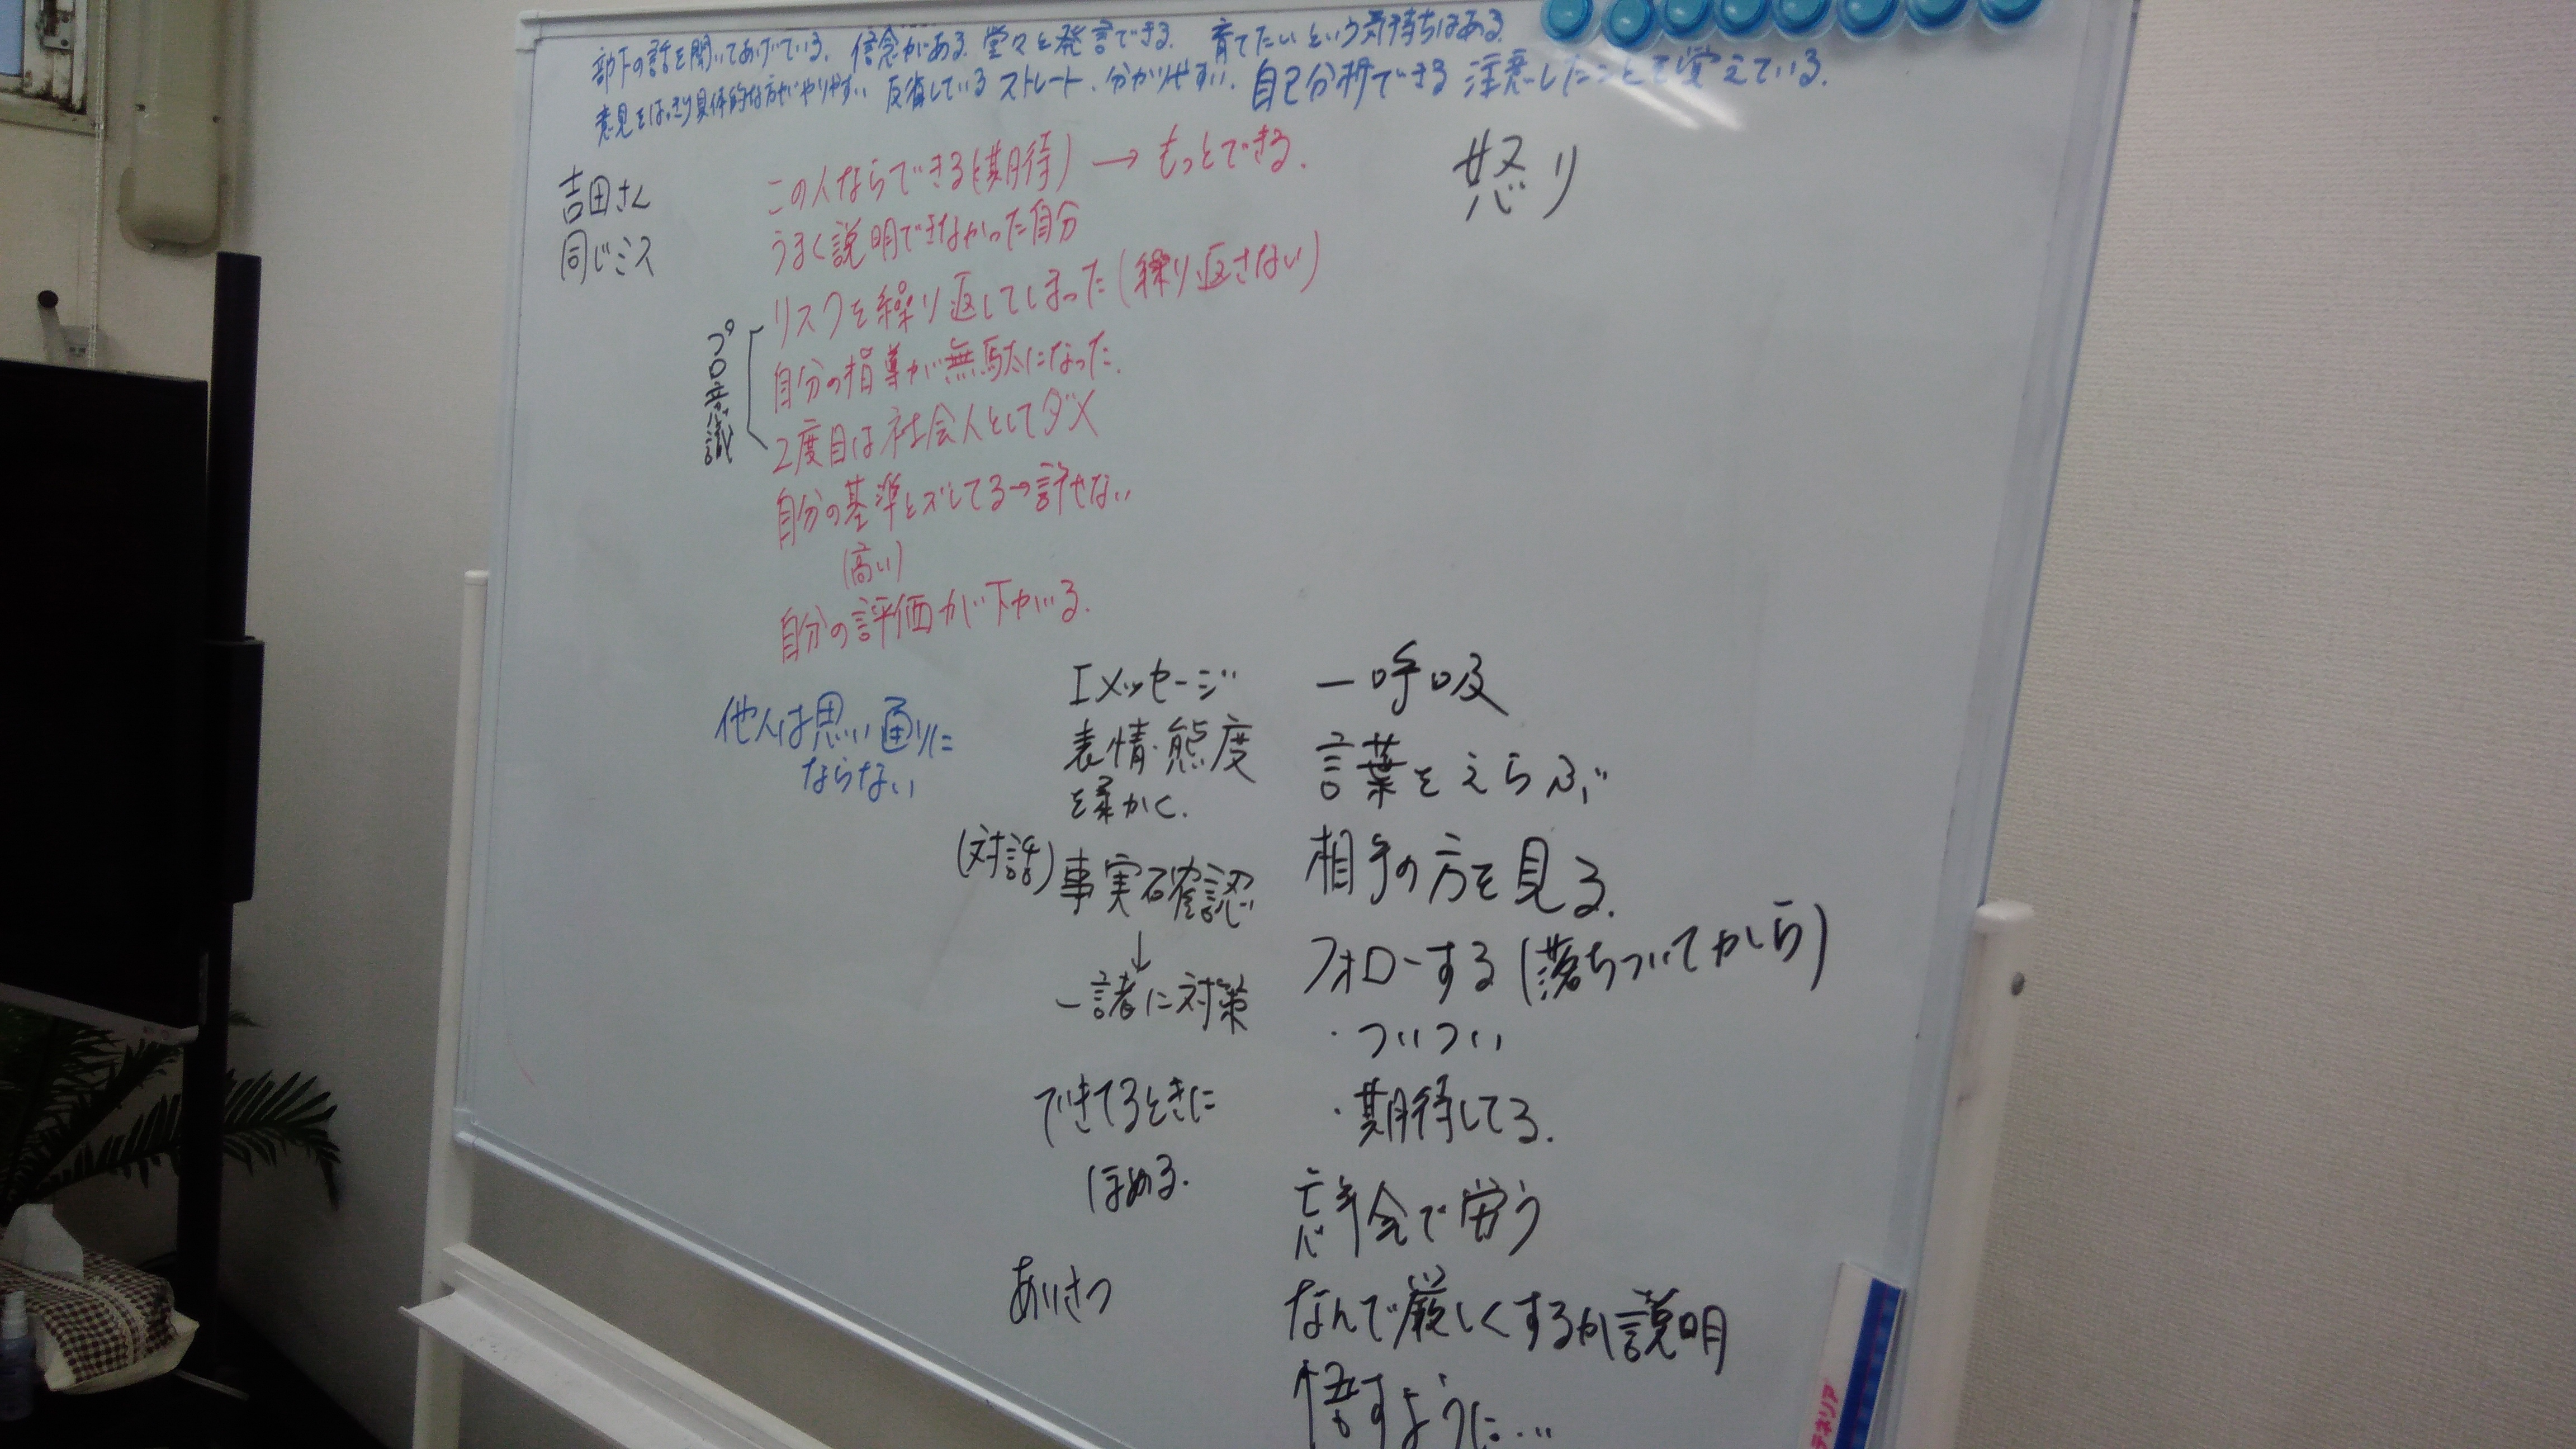 部下の話を聞いてあげている。信念がある 堂々と発言できる 育てたいという気持ちはある。
意見をはっきり具体的な方がやりやすい 反省している ストレート、分かりやすい。自己分析できる 注意したことを覚えている。
怒り
吉田さん
同じミス
この人ならできる(期待) → もっとできる。
うまく説明できなかった自分
リスクを繰り返してしまった(繰り返さない)
自分の指導が無駄になった。
2度目は社会人としてダメ
プロ意識
自分の基準とズレてる→許せない
(高い)
自分の評価が下がる。
他人は思い通りに
ならない
Iメッセージ
表情・態度
を柔かく.
(対話)事実確認
↓
一諸に対策
できてるときに
ほめる.
あいさつ
一呼吸
言葉をえらぶ
相手の方を見る.
フォローする(落ちついてから)
・ついつい
・期待してる.
忘年会で労う
なんで厳しくするか説明
悟すように…
テネリア